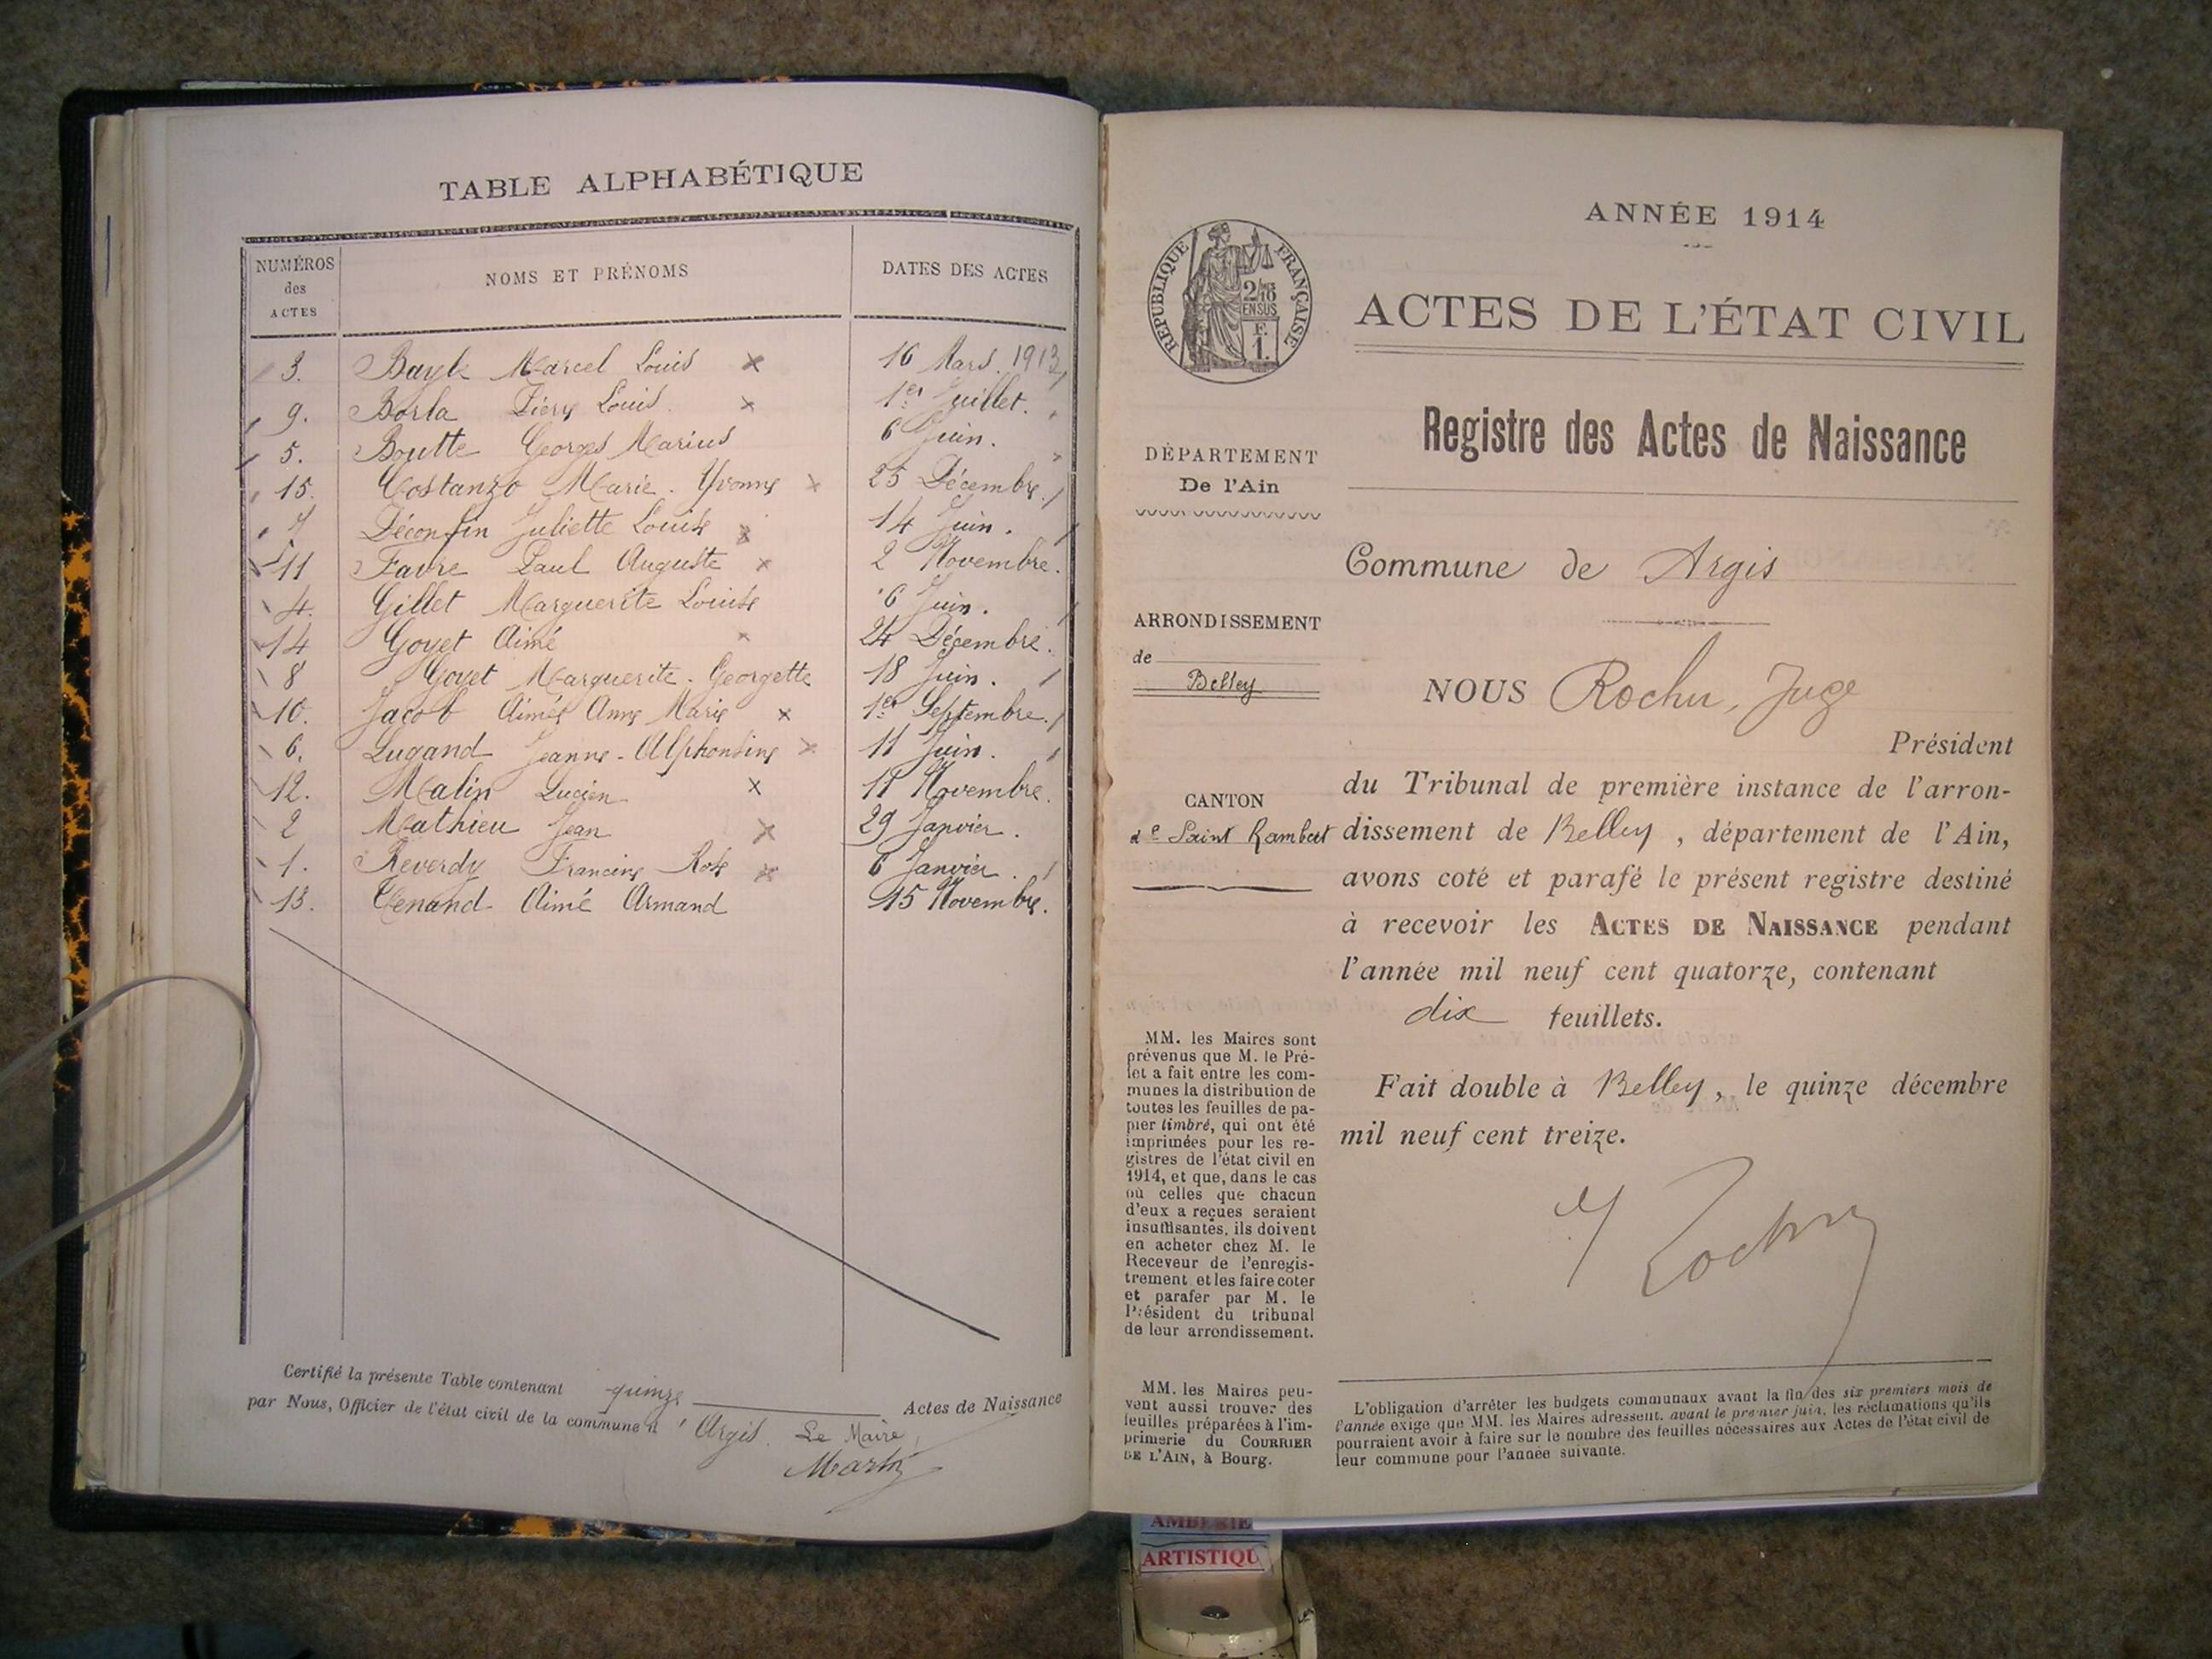 TABLE ALPHABÉTIQUE
NUMÉROS des ACTES
NOMS ET PRÉNOMS
DATES DES ACTES
3. Bayle Marcel Louis x 16 Mars. 1913
9. Borla Piery Louis. x 1er Juillet.
5. Boutte Georges Marius 6 Juin.
15. Costanzo Marie. Yvonne x 25 Décembre.
7 Déconfin Juliette Louise x 14 Juin.
11 Favre Paul Auguste x 2 Novembre.
4. Gillet Marguerite Louise 6 Juin.
14 Goyet Aimé x 24 Décembre.
8 Goyet Marguerite. Georgette 18 Juin.
10. Jacob Aimée Anne Marie x 1er Septembre.
6. Lugand Jeanne-Alphonsine x 11 Juin.
12. Malin Lucien x 11 Novembre.
2 Mathieu Jean x 29 Janvier.
1. Reverdy Francine Rose x 6 Janvier.
13. Tenand Aimé Armand 15 Novembre.
Certifié la présente Table contenant quinze Actes de Naissance
par Nous, Officier de l'état civil de la commune d'Argis. Le Maire,
ANNÉE 1914
RÉPUBLIQUE FRANÇAISE
2/10 EN SUS
F.
1.
ACTES DE L'ÉTAT CIVIL
Registre des Actes de Naissance
DÉPARTEMENT
De l'Ain
Commune de Argis
ARRONDISSEMENT
de
Belley
NOUS Rochu, Juge
Président
du Tribunal de première instance de l'arron-
CANTON
de Saint Rambert
dissement de Belley, département de l'Ain,
avons coté et parafé le présent registre destiné
à recevoir les ACTES DE NAISSANCE pendant
l'année mil neuf cent quatorze, contenant
dix feuillets.
Fait double à Belley, le quinze décembre
mil neuf cent treize.
Rochu
MM. les Maires sont
prévenus que M. le Pré-
fet a fait entre les com-
munes la distribution de
toutes les feuilles de pa-
pier timbré, qui ont été
imprimées pour les re-
gistres de l'état civil en
1914, et que, dans le cas
où celles que chacun
d'eux a reçues seraient
insuffisantes, ils doivent
en acheter chez M. le
Receveur de l'enregis-
trement et les faire coter
et parafer par M. le
Président du tribunal
de leur arrondissement.
MM. les Maires peu-
vent aussi trouver des
feuilles préparées à l'im-
primerie du COURRIER
DE L'AIN, à Bourg.
L'obligation d'arrêter les budgets communaux avant la fin des six premiers mois de
l'année exige que MM. les Maires adressent, avant le premier juin, les réclamations qu'ils
pourraient avoir à faire sur le nombre des feuilles nécessaires aux Actes de l'état civil de
leur commune pour l'année suivante.
AMBERIE
ARTISTIQU